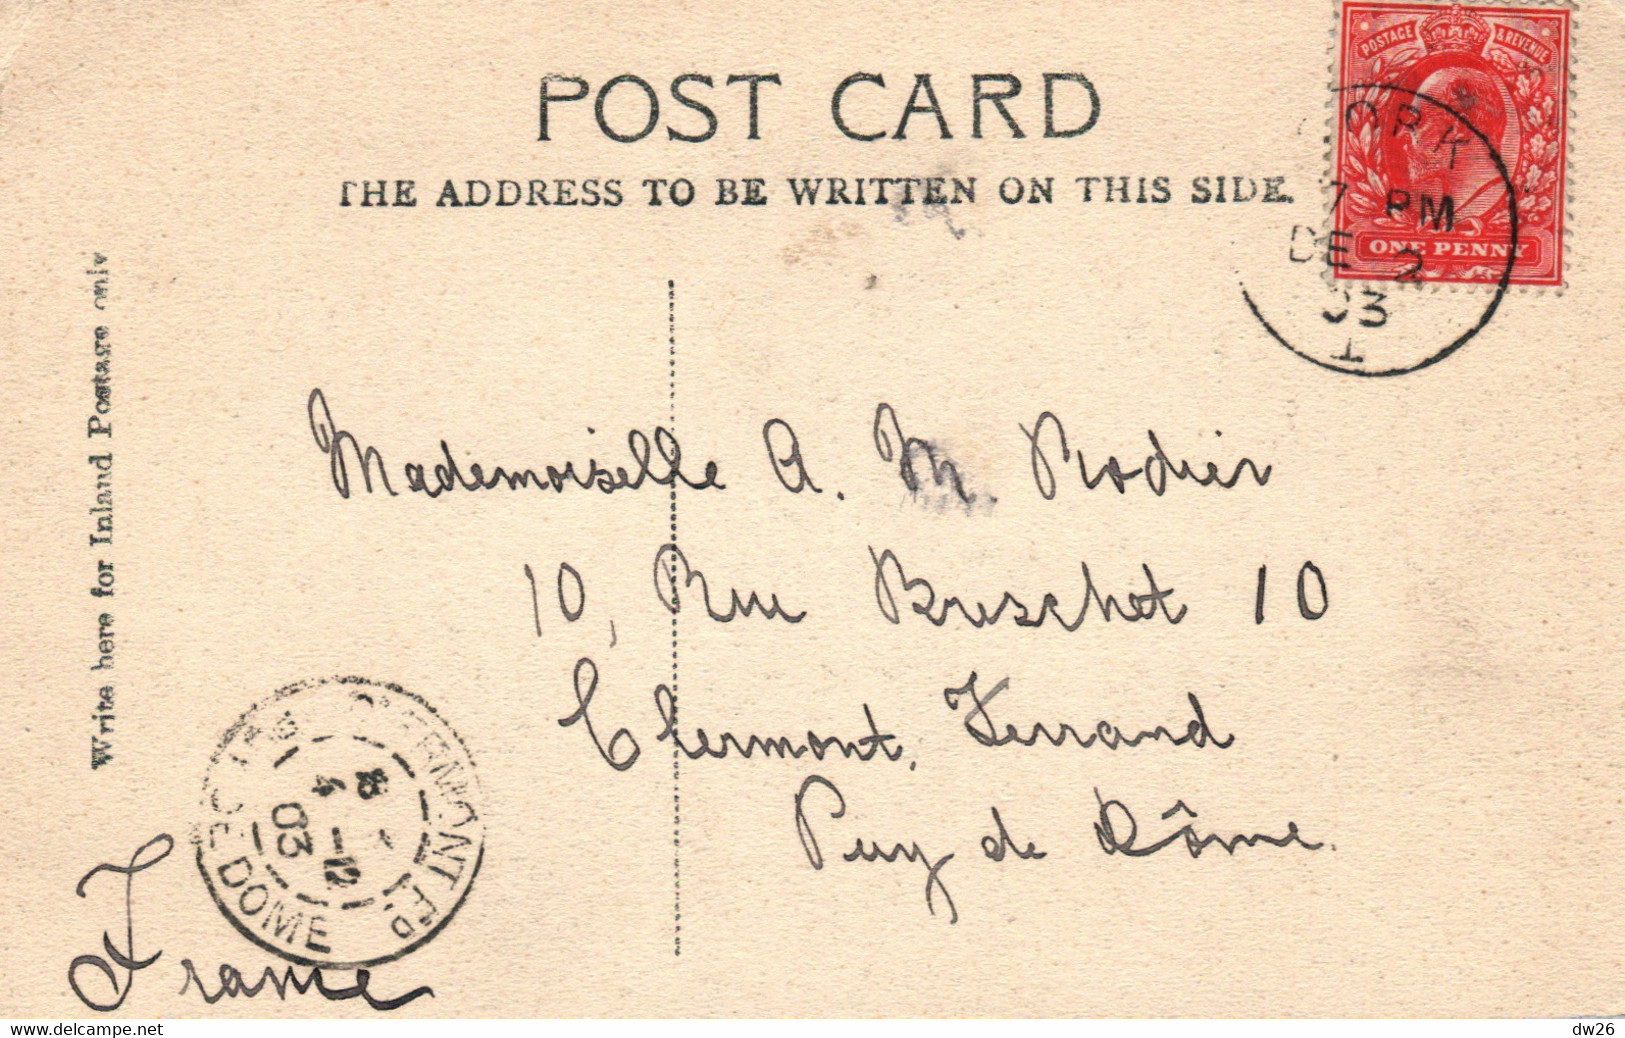 POST CARD
THE ADDRESS TO BE WRITTEN ON THIS SIDE.
POSTAGE & REVENUE
ONE PENNY
ORK
7 PM
DE 2
03
Write here for Inland Postage only
Mademoiselle A. M. Rodier
10, Rue Breschet 10
Clermont, Ferrand
Puy de Dôme.
France
CLERMONT-FD
4 -12
03
DE DOME
www.delcampe.net
dw26